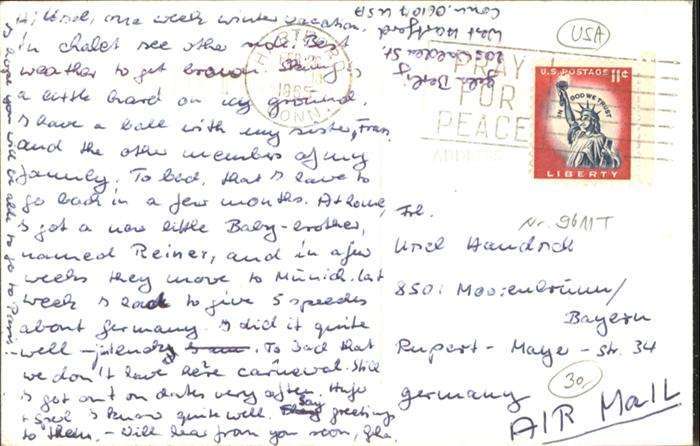 Hi Ursel, one week winter vacation.
in chalet see other side. Best
weather to get brown. Skiing is
a little hard on icy ground.
I have a ball with my sister, Fran
and the other members of my
family. To bad, that I have to
go back in a few months. At home
I got a new little Baby-brother,
named Reiner, and in a few
weeks they move to Munich. last
week I had to give 5 speeches
about germany. I did it quite
well
To bad that
we don't have here carneval. Still
I get out on dates very often. Hugo
I know quite well. Say greetings
to them. - Will hear from you soon,
I hope you will be able to go to Paris!
West Hartford
Conn. 06107 USA
USA
HARTFORD
1965
CONN.
PRAY
FOR
PEACE
U.S. POSTAGE 11¢
IN GOD WE TRUST
LIBERTY
Nr. 96MT
Frl.
8501
Bayern
Rupert-Mayer-Str. 34
germany
30,
AIR MAIL